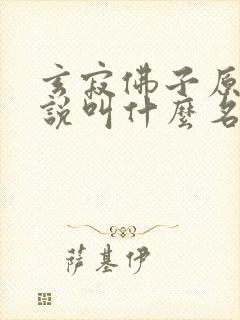 玄寂佛子原
說叫什麼名
薩基伊